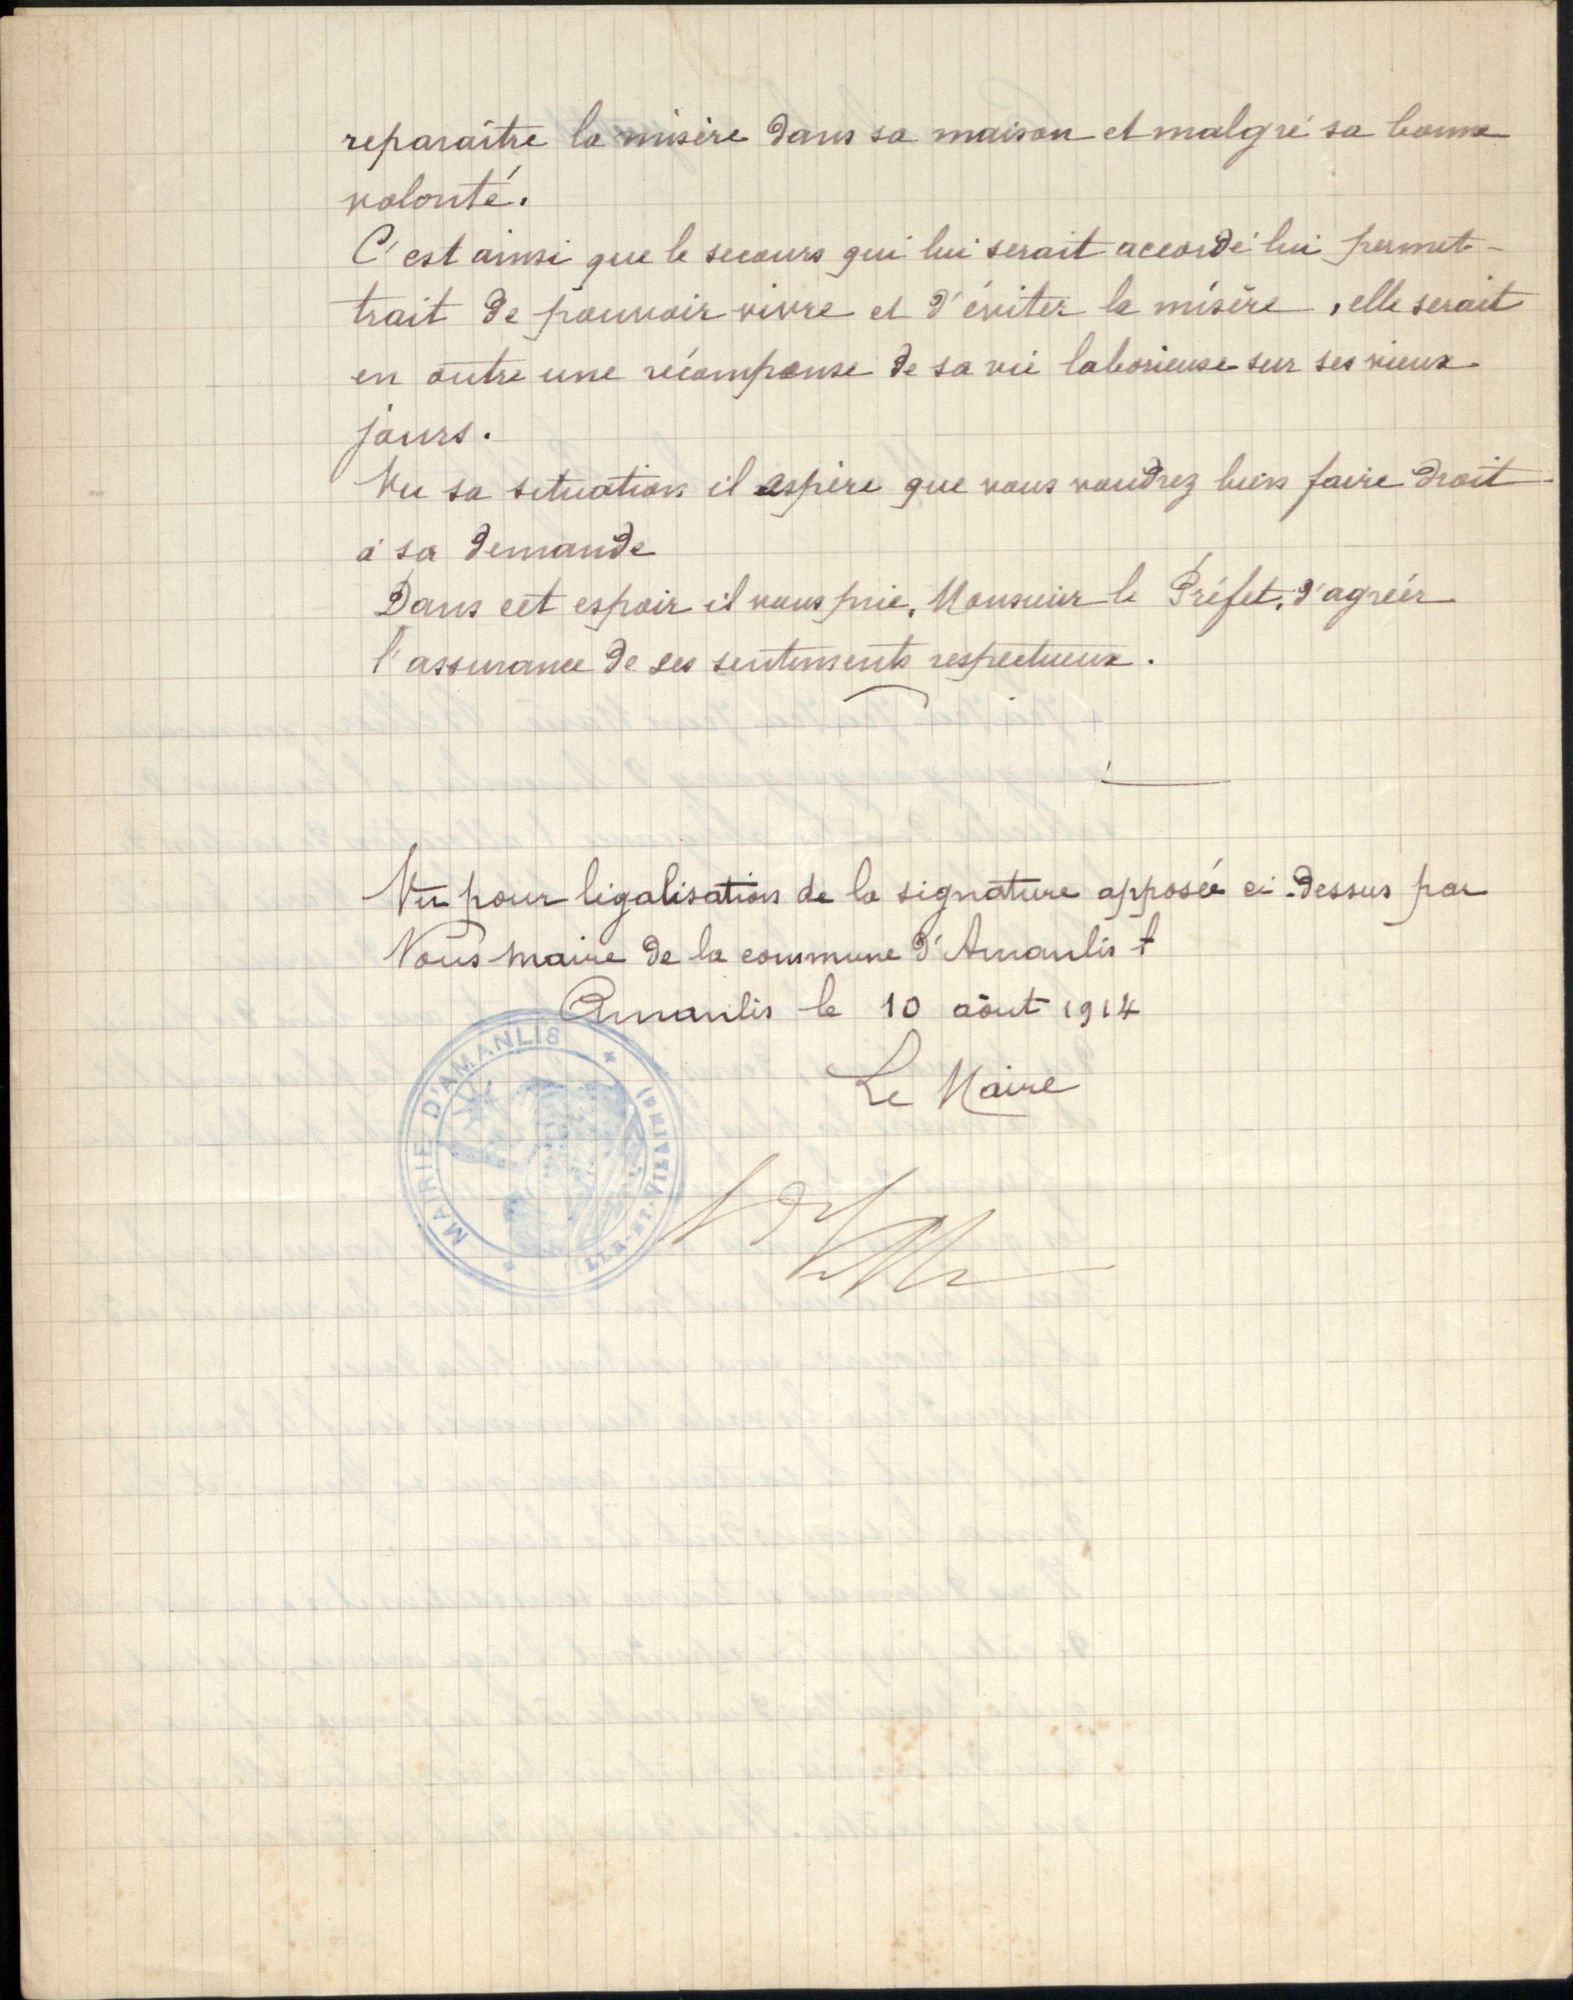 reparaître la misère dans sa maison et malgré sa bonne
volonté.
C'est ainsi que le secours qui lui serait accordé lui permet-
trait de pouvoir vivre et d'éviter la misère, elle serait
en outre une récompense de sa vie laborieuse sur ses vieux
jours.
Vu sa situation il espère que vous voudrez bien faire droit
à sa demande
Dans cet espoir il vous prie, Monsieur le Préfet, d'agréer
l'assurance de ses sentiments respectueux.
Vu pour légalisation de la signature apposée ci-dessus par
Nous maire de la commune d'Amanlis
Amanlis le 10 août 1914
Le Maire
MAIRIE D'AMANLIS
ILLE-ET-VILAINE